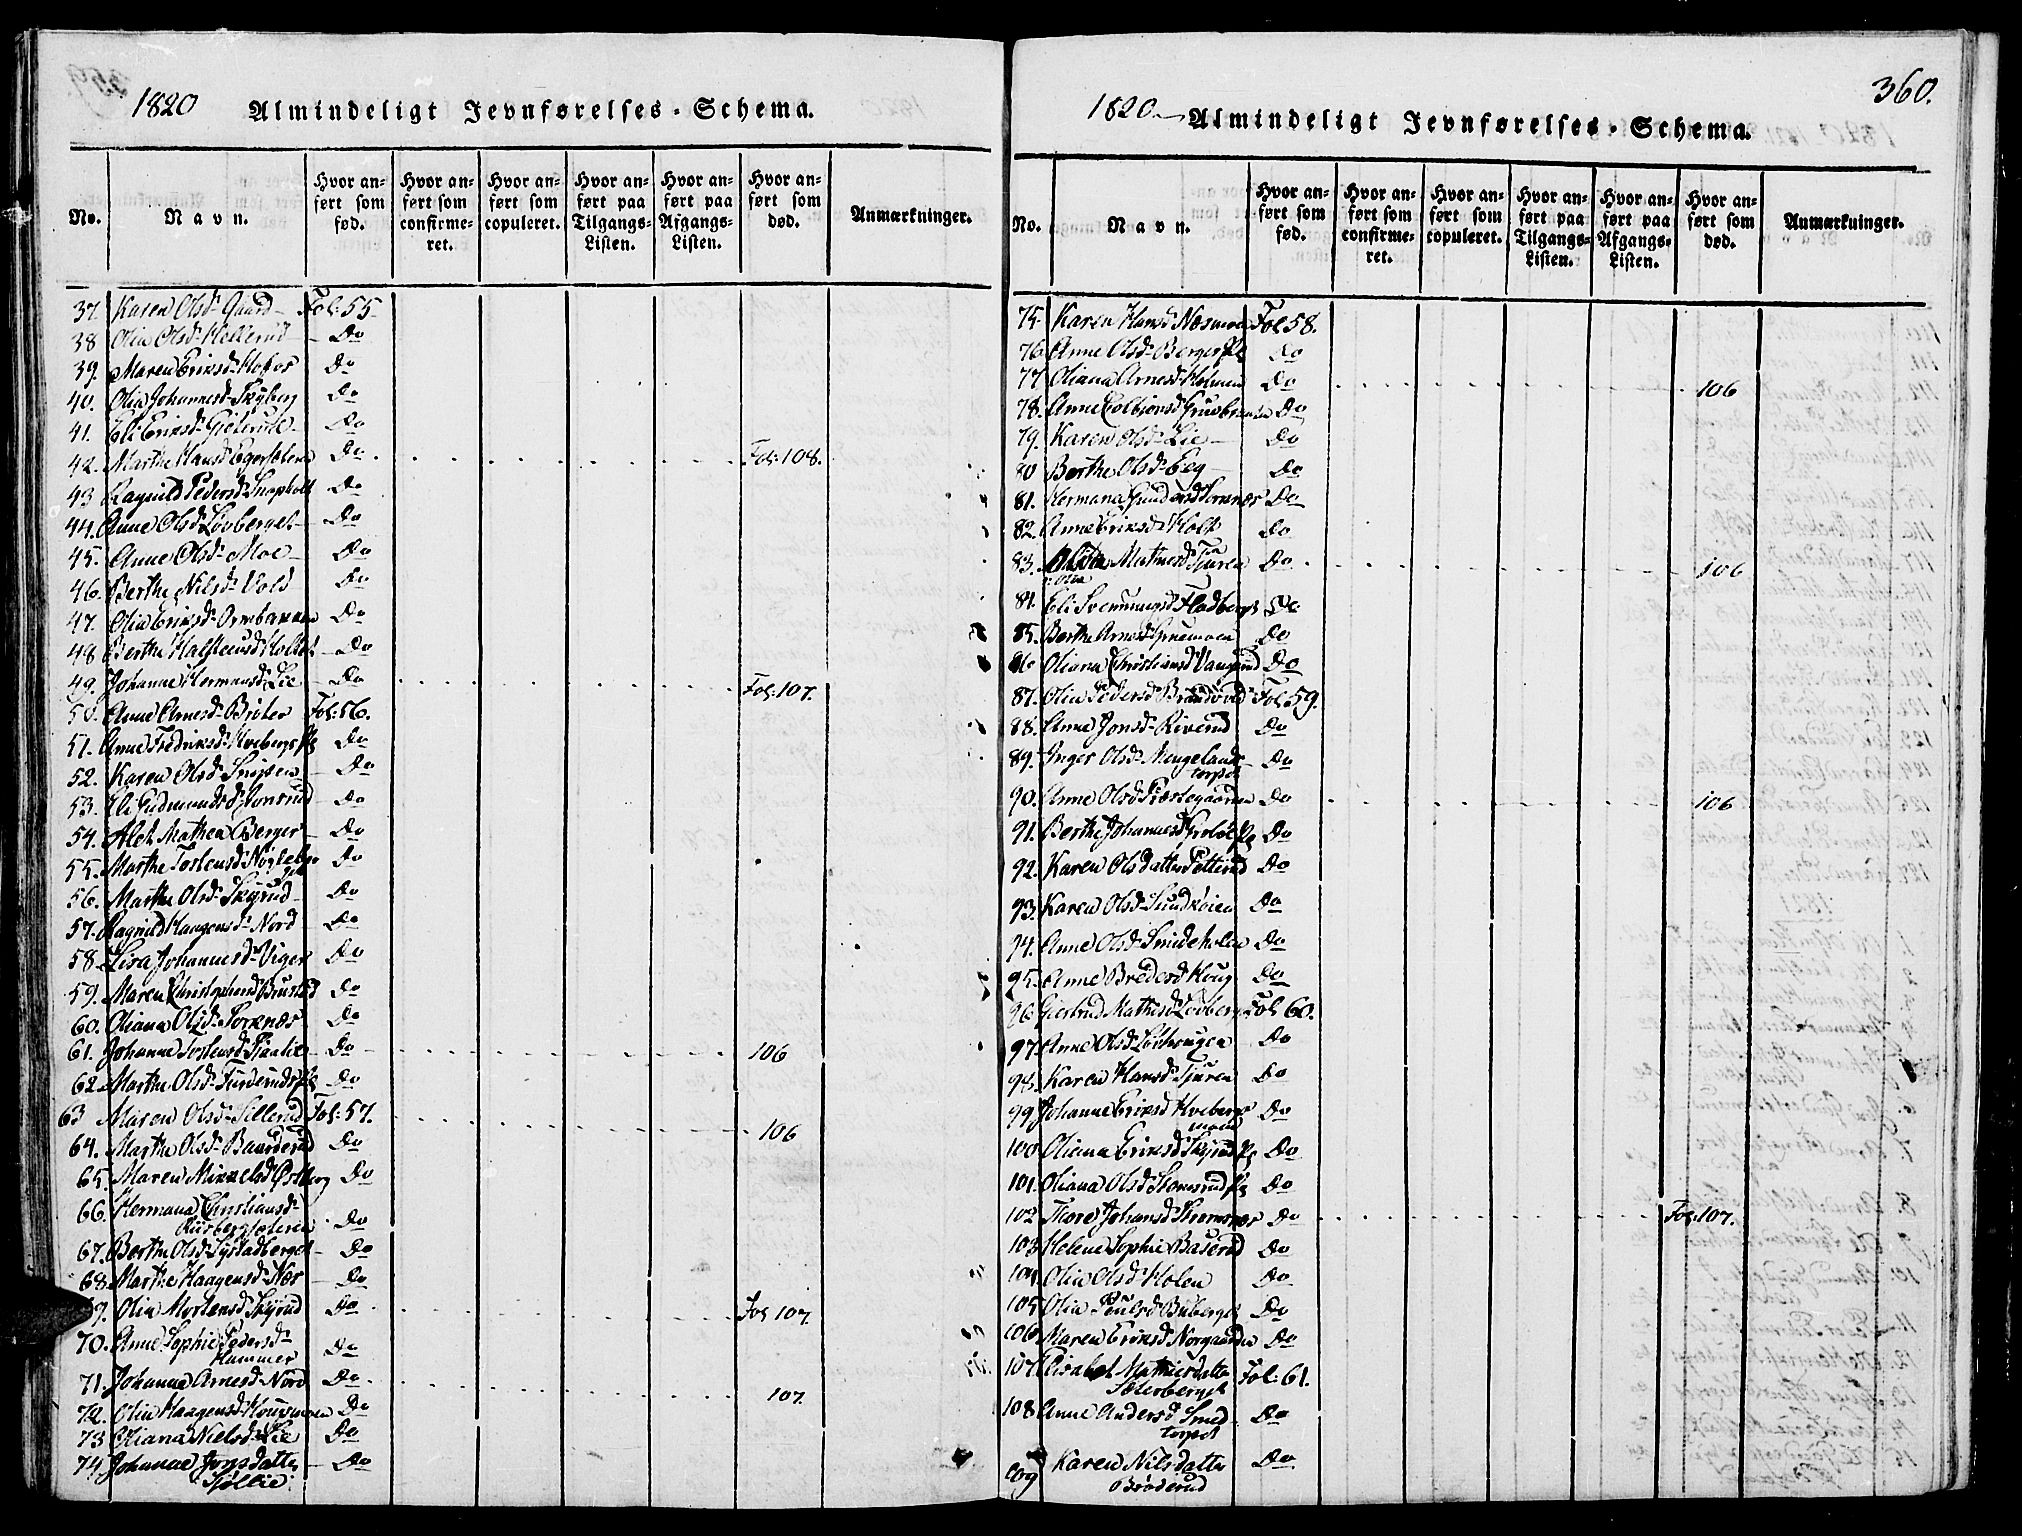 1820 Almindeligt Jevnførelses-Schema.
No.
Navn.
Hvor an-
ført som
fød.
Hvor an-
ført som
confirme-
ret.
Hvor an-
ført som
copuleret.
Hvor an-
ført paa
Tilgangs-
Listen.
Hvor an-
ført paa
Afgangs-
Listen.
Hvor an-
ført som
død.
Anmærkninger.
37. Karen Olsd. Gaard Fol: 55
38 Olia Olsd. Hellerud Do
39. Maren Eriksd. Hofos Do
40. Olia Johannesd. Skyberg Do
41. Eli Eriksd. Do
42. Marthe Hansd. Do Fol: 108.
43 Ragnild Pedersd. Do
44. Anne Olsd. Lövberget Do
45. Anne Olsd. Moe Do
46. Berthe Nilsd. Vold Do
47. Olia Eriksd. Do
48 Berthe Halsteensd. Holtet Do
49. Johanne Hermansd. Lie Do Fol: 107.
50. Anne Arnesd. Bröten Fol: 56.
51. Anne Fredriksd. Hvebergs Pl Do
52. Karen Olsd. Do
53. Eli Gudmundsd. Do
54. Alet Mathea Berger Do
55. Marthe Tostensd. Do
56. Marthe Olsd. Skyrud Do
57. Ragnild Haagensd. Nord Do
58. Lisa Johannesd. Viger Do
59. Maren Christophersd. Brustad Do
60. Oliana Olsd. Sorknæs Do
61. Johanne Tostensd. Do 106
62 Marthe Olsd. Do
63 Maren Olsd. Sillerud Fol: 57. 106
64. Marthe Olsd. Baarderud Do
65. Maren Mikkelsd. Östberg Do
66. Hermana Christiansd.
Do
67. Berthe Olsd. Do
68. Marthe Haagensd. Nær Do
69. Olia Mortensd. Skyrud Do Fol 107.
70. Anne Sophie Pedersd.
Hammer Do
71. Johanne Arnesd. Nord Do 107.
72. Olia Haagensd. Do
73 Oliana Nielsd. Lie Do
74 Johanne Jonsdatter Do
Sjøllie.
360.
1820. Almindeligt Jevnførelses-Schema.
No.
Navn.
Hvor an-
ført som
fød.
Hvor an-
ført som
confirme-
ret.
Hvor an-
ført som
copuleret.
Hvor an-
ført paa
Tilgangs-
Listen.
Hvor an-
ført paa
Afgangs-
Listen.
Hvor an-
ført som
død.
Anmærkninger.
75. Karen Hansd. Næsmoen Fol 58.
76 Anne Olsd. Berger Pl Do
77 Oliana Arnesd. Holmen Do 106
78. Anne Colbjörnsd. Do
79. Karen Olsd. Lie Do
80 Berthe Olsd. Eeg Do
81. Hermana Gundersd. Sorknæs Do
82. Anne Eriksd. Holt Do
83. Mathisd. Tjuren Do 106
84. Eli Svenningsd. Fladberget Do
85. Berthe Arnesd. Gruemoen Do
86 Oliana Christiansd. Vangerud Do
87. Olia Pedersd. Brandvold Fol 59.
88. Anne Jonsd. Riverud Do
89. Inger Olsd. Mengelands
torpet Do
90. Anne Olsd. Præstegaarden Do 106
91. Berthe Johannesd. Grøset Pl Do
92. Karen Olsdatter Petterud Do
93. Karen Olsd. Sundköien Do
94. Anne Olsd. Do
95. Anne Bredesd. Houg Do
96. Giertrud Mathisd. Lövberget Fol 60.
97 Anne Olsd. Do
98. Karen Hansd. Tjuren Do
99 Johanne Eriksd. Hvebergs
moen Do
100 Oliana Eriksd. Skyrud Pl Do
101. Oliana Olsd. Stomrud Pl Do
102 Thore Johansd. Strømsnæs Do Fol: 107.
103 Helene Sophie Baserud Do
104. Olia Olsd. Holen Do
105 Olia Poulsd. Buberget Do
106 Maren Eriksd. Norgaarden Do
107. Elisabet Mathisdatter Fol: 61.
Sæterberget
108 Anne Andersd. Smed
torpet Do
109 Karen Nilsdatter Do.
Bröderud